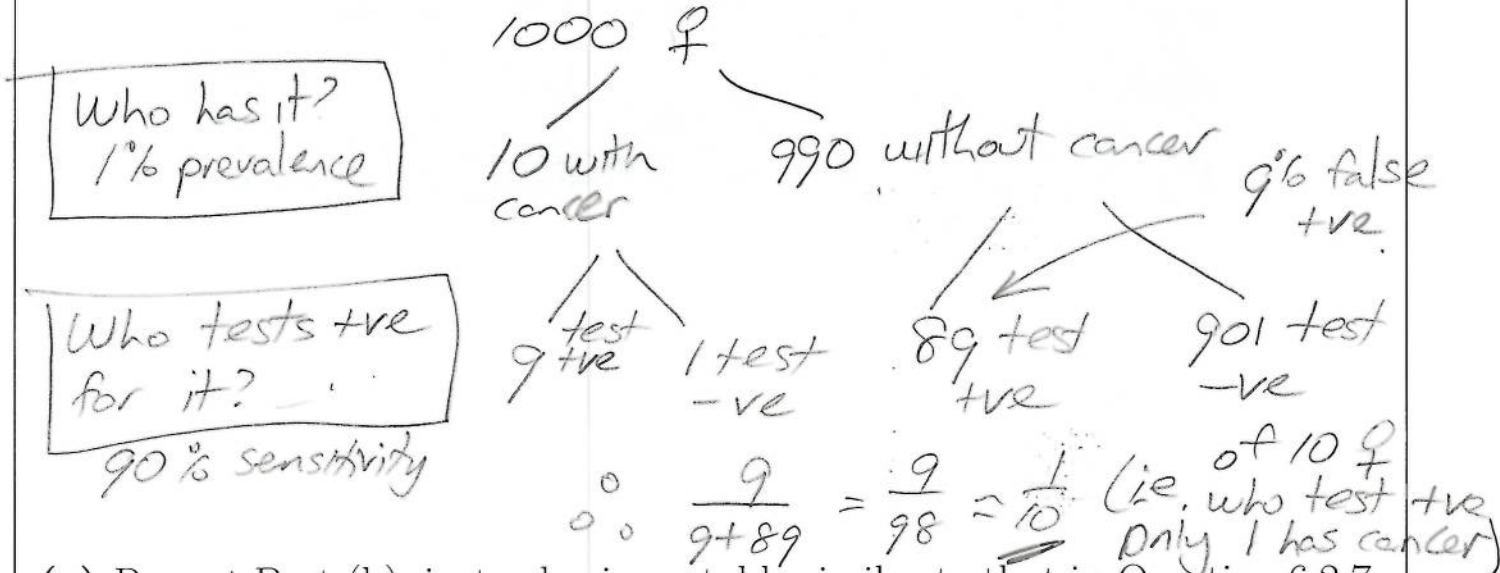 1000 ♀
Who has it?
1% prevalence
10 with
cancer
990 without cancer
9% false
+ve
Who tests +ve
for it?
90% sensitivity
9 test
+ve
1 test
-ve
89 test
+ve
901 test
-ve
∴ 9/(9+89) = 9/98 ≈ 1/10 (ie. of 10 ♀
who test +ve
only 1 has cancer)